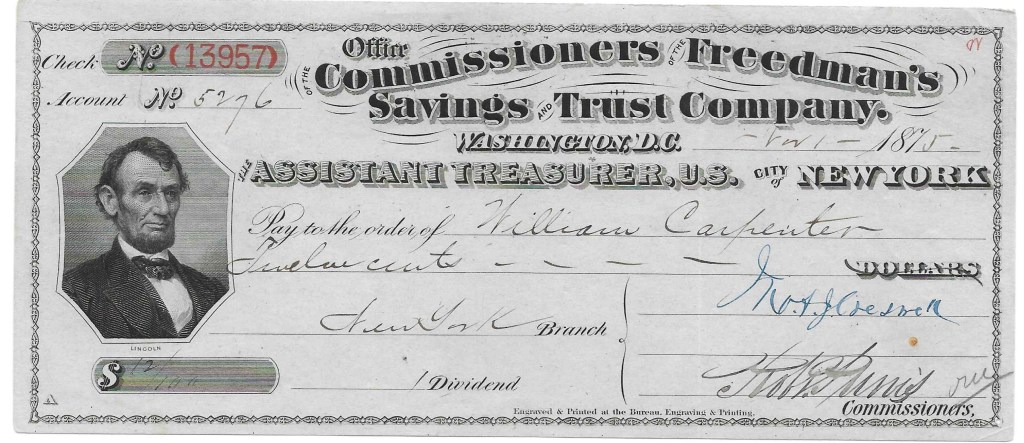 Check No. (13957)
Account No. 5276
Office
OF THE Commissioners OF THE Freedman's
Savings AND Trust Company.
WASHINGTON, D.C. Nov 1 - 1875 -
THE ASSISTANT TREASURER, U.S. CITY of NEW YORK
Pay to the order of William Carpenter
Twelve cents - - - - DOLLARS
Jno. A. J. Creswell
New York Branch
LINCOLN
$ 12/100
Dividend
Commissioners,
Engraved & Printed at the Bureau, Engraving & Printing.